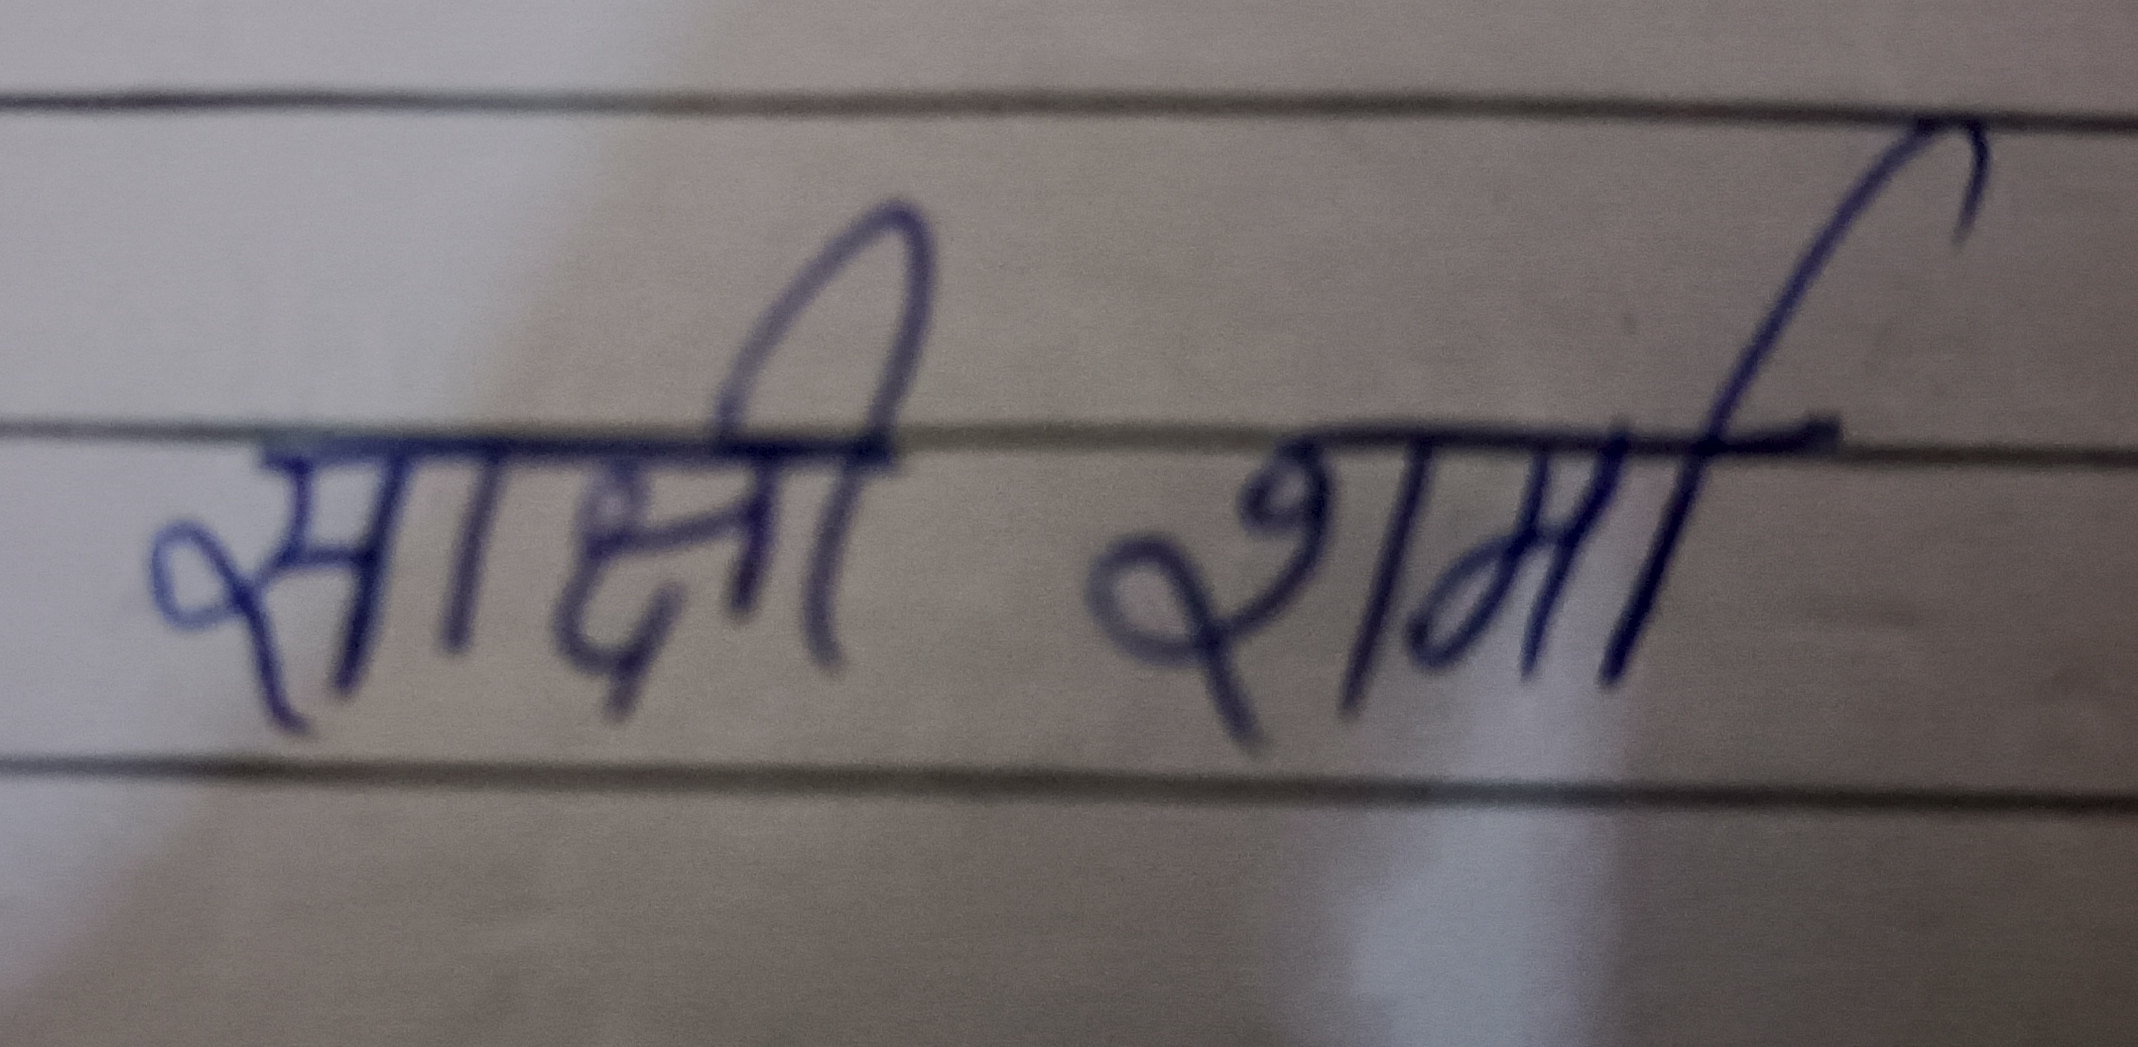 साक्षी शर्मा